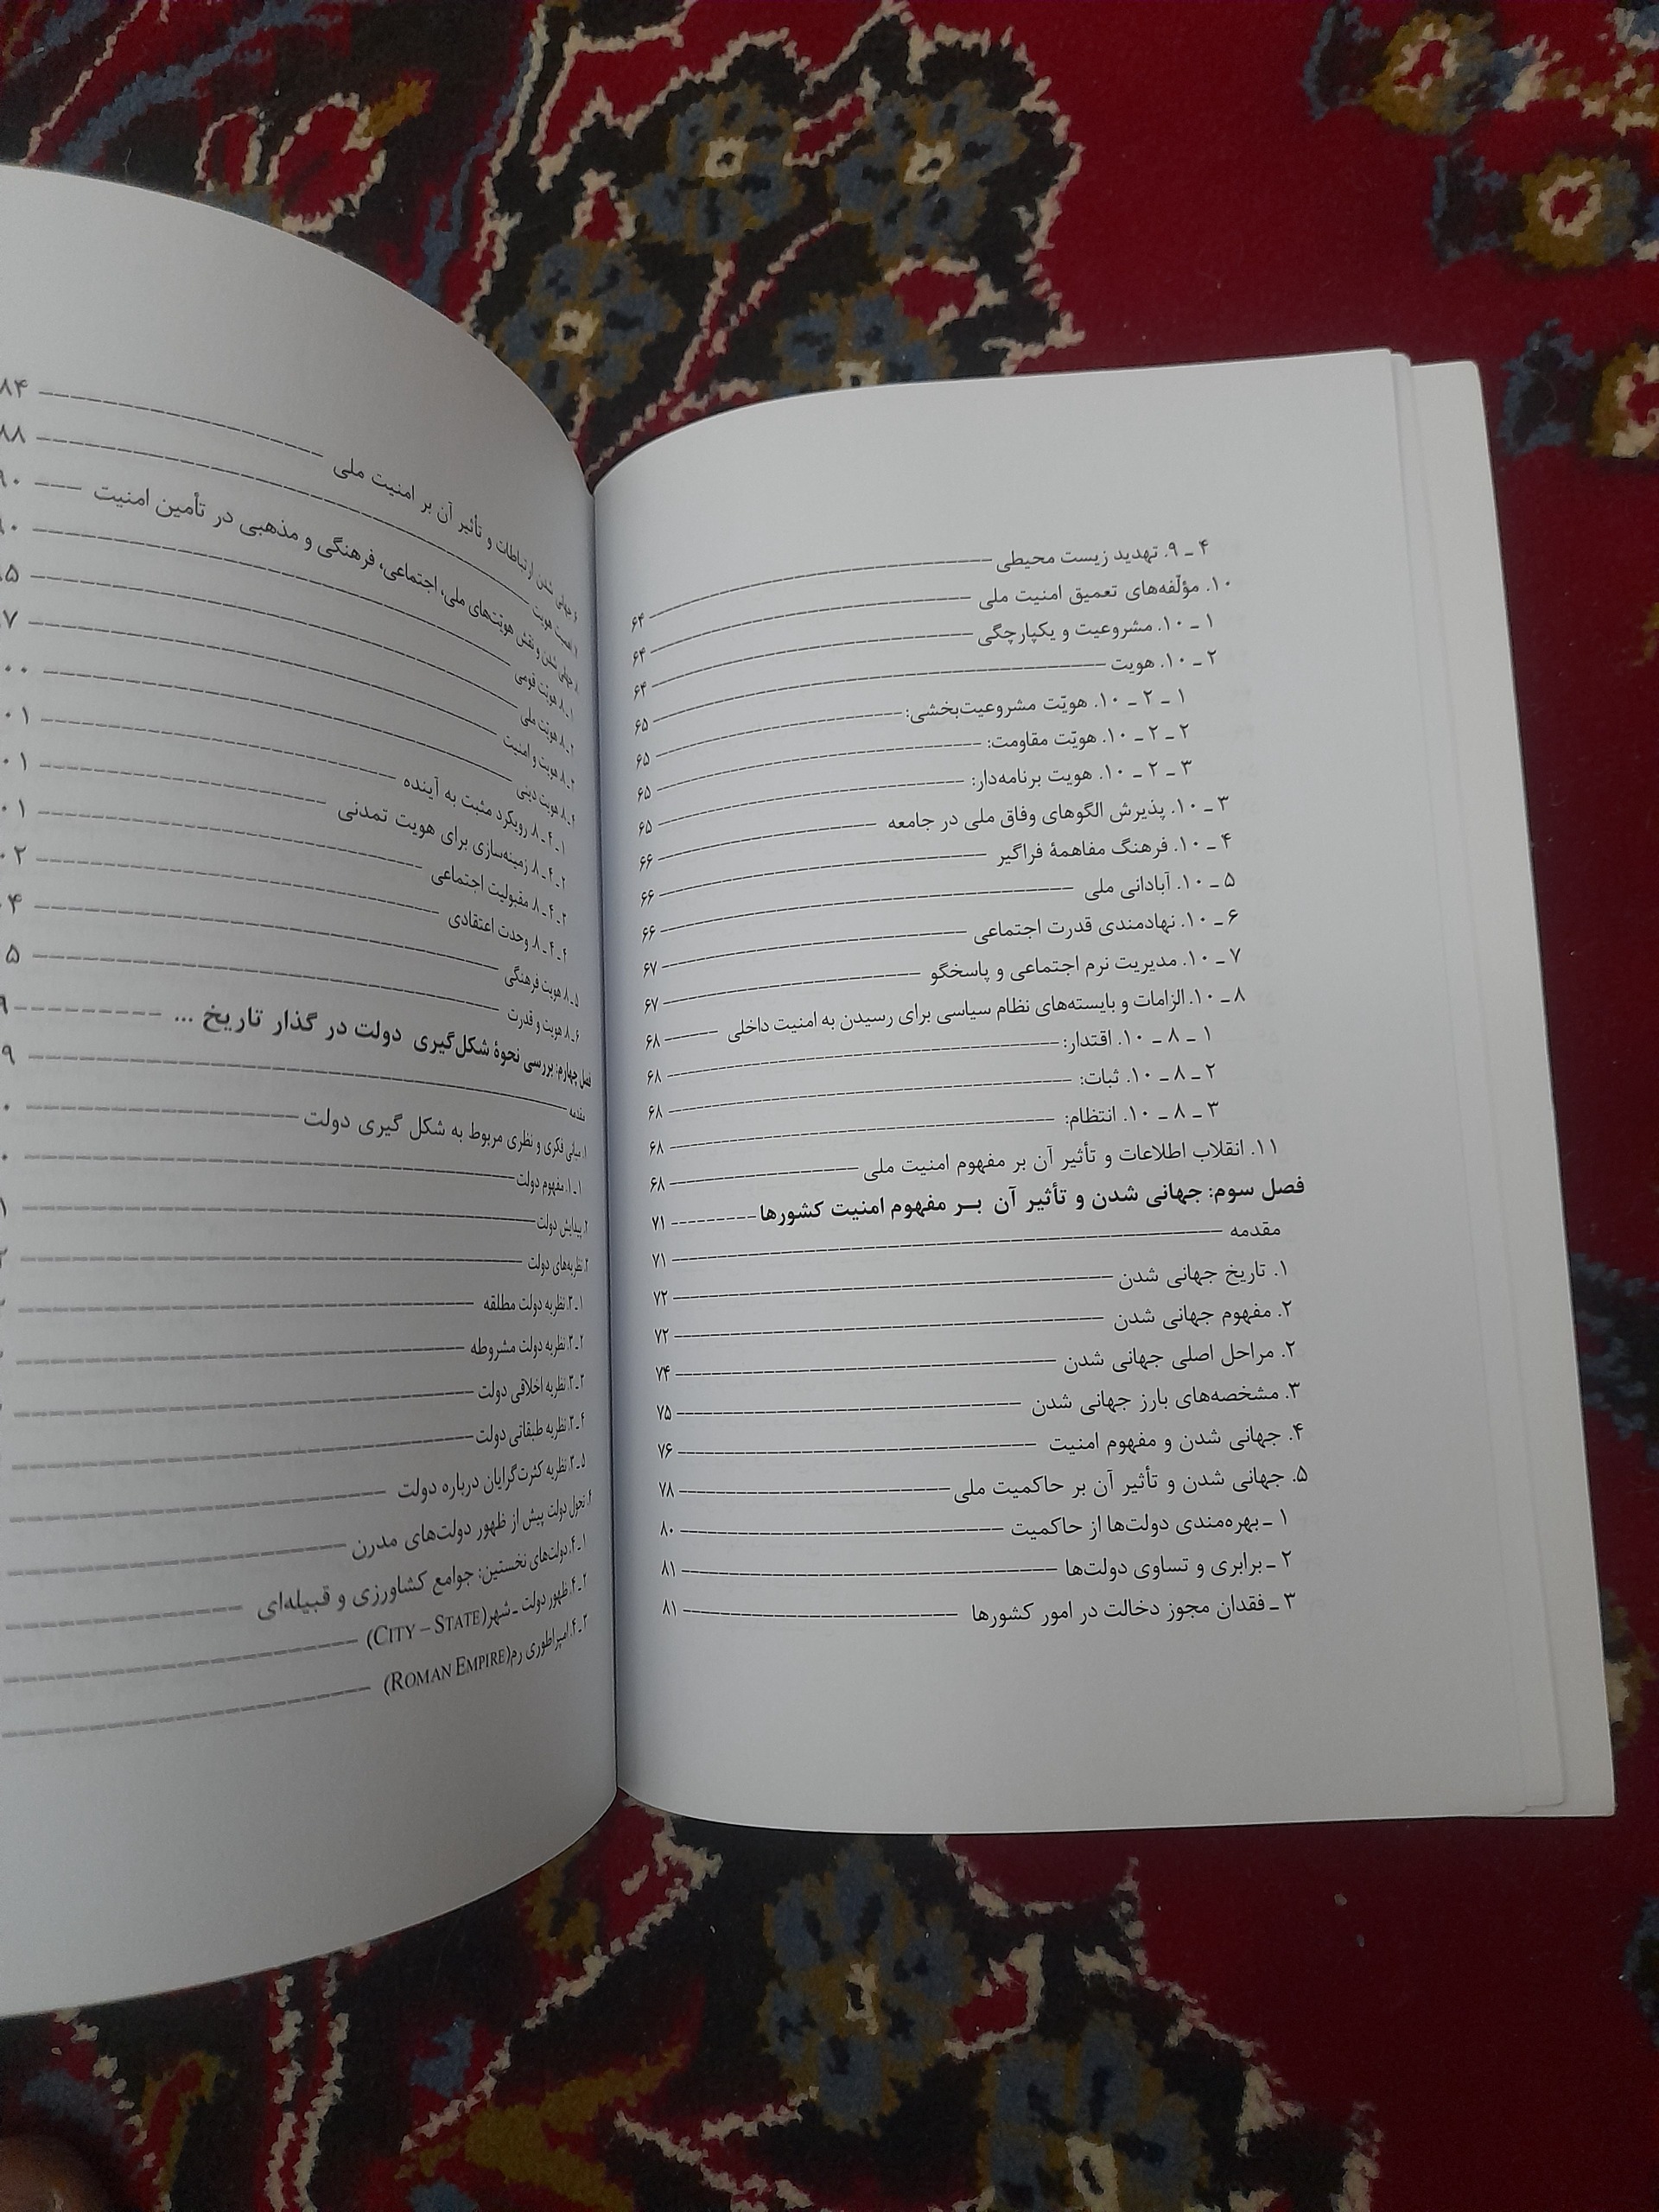 ۴ ـ ۹. تهدید زیست محیطی ۶۴
۱۰. مؤلّفه‌های تعمیق امنیت ملی ۶۴
۱ ـ ۱۰. مشروعیت و یکپارچگی ۶۴
۲ ـ ۱۰. هویت ۶۵
۱ ـ ۲ ـ ۱۰. هویّت مشروعیت‌بخشی: ۶۵
۲ ـ ۲ ـ ۱۰. هویّت مقاومت: ۶۵
۳ ـ ۲ ـ ۱۰. هویت برنامه‌دار: ۶۵
۳ ـ ۱۰. پذیرش الگوهای وفاق ملی در جامعه ۶۶
۴ ـ ۱۰. فرهنگ مفاهمهٔ فراگیر ۶۶
۵ ـ ۱۰. آبادانی ملی ۶۶
۶ ـ ۱۰. نهادمندی قدرت اجتماعی ۶۷
۷ ـ ۱۰. مدیریت نرم اجتماعی و پاسخگو ۶۷
۸ ـ ۱۰. الزامات و بایسته‌های نظام سیاسی برای رسیدن به امنیت داخلی ۶۸
۱ ـ ۸ ـ ۱۰. اقتدار: ۶۸
۲ ـ ۸ ـ ۱۰. ثبات: ۶۸
۳ ـ ۸ ـ ۱۰. انتظام: ۶۸
۱۱. انقلاب اطلاعات و تأثیر آن بر مفهوم امنیت ملی ۶۸
فصل سوم: جهانی شدن و تأثیر آن بـر مفهوم امنیت کشورها ۷۱
مقدمه ۷۱
۱. تاریخ جهانی شدن ۷۲
۲. مفهوم جهانی شدن ۷۲
۲. مراحل اصلی جهانی شدن ۷۴
۳. مشخصه‌های بارز جهانی شدن ۷۵
۴. جهانی شدن و مفهوم امنیت ۷۶
۵. جهانی شدن و تأثیر آن بر حاکمیت ملی ۷۸
۱ ـ بهره‌مندی دولت‌ها از حاکمیت ۸۰
۲ ـ برابری و تساوی دولت‌ها ۸۱
۳ ـ فقدان مجوز دخالت در امور کشورها ۸۱
۶. جهانی شدن ارتباطات و تأثیر آن بر امنیت ملی ۸۴
امنیت هویت ۸۸
۸. جهانی شدن و نقش هویّت‌های ملی، اجتماعی، فرهنگی و مذهبی در تأمین امنیت
۱ ـ ۸. هویّت قومی
۲ ـ ۸. هویّت ملی
۳ ـ ۸. هویت و امنیت
۴ ـ ۸. هویت دینی
۱ ـ ۴ ـ ۸. رویکرد مثبت به آینده
۲ ـ ۴ ـ ۸. زمینه‌سازی برای هویت تمدنی
۳ ـ ۴ ـ ۸. مقبولیت اجتماعی
۴ ـ ۴ ـ ۸. وحدت اعتقادی
۵ ـ ۸. هویت فرهنگی
۶ ـ ۸. هویت و قدرت
فصل چهارم: بررسی نحوهٔ شکل‌گیری دولت در گذار تاریخ ...
مقدمه
۱. مبانی فکری و نظری مربوط به شکل گیری دولت
۱ ـ ۱. مفهوم دولت
۲. پیدایش دولت
۳. نظریه‌های دولت
۱ ـ ۳. نظریه دولت مطلقه
۲ ـ ۳. نظریه دولت مشروطه
۳ ـ ۳. نظریه اخلاقی دولت
۴ ـ ۳. نظریه طبقاتی دولت
۵ ـ ۳. نظریه کثرت‌گرایان درباره دولت
۴. تحول دولت پیش از ظهور دولت‌های مدرن
۱ ـ ۴. دولت‌های نخستین: جوامع کشاورزی و قبیله‌ای
۲ ـ ۴. ظهور دولت ـ شهر (CITY – STATE)
۳ ـ ۴. امپراطوری رم (ROMAN EMPIRE)